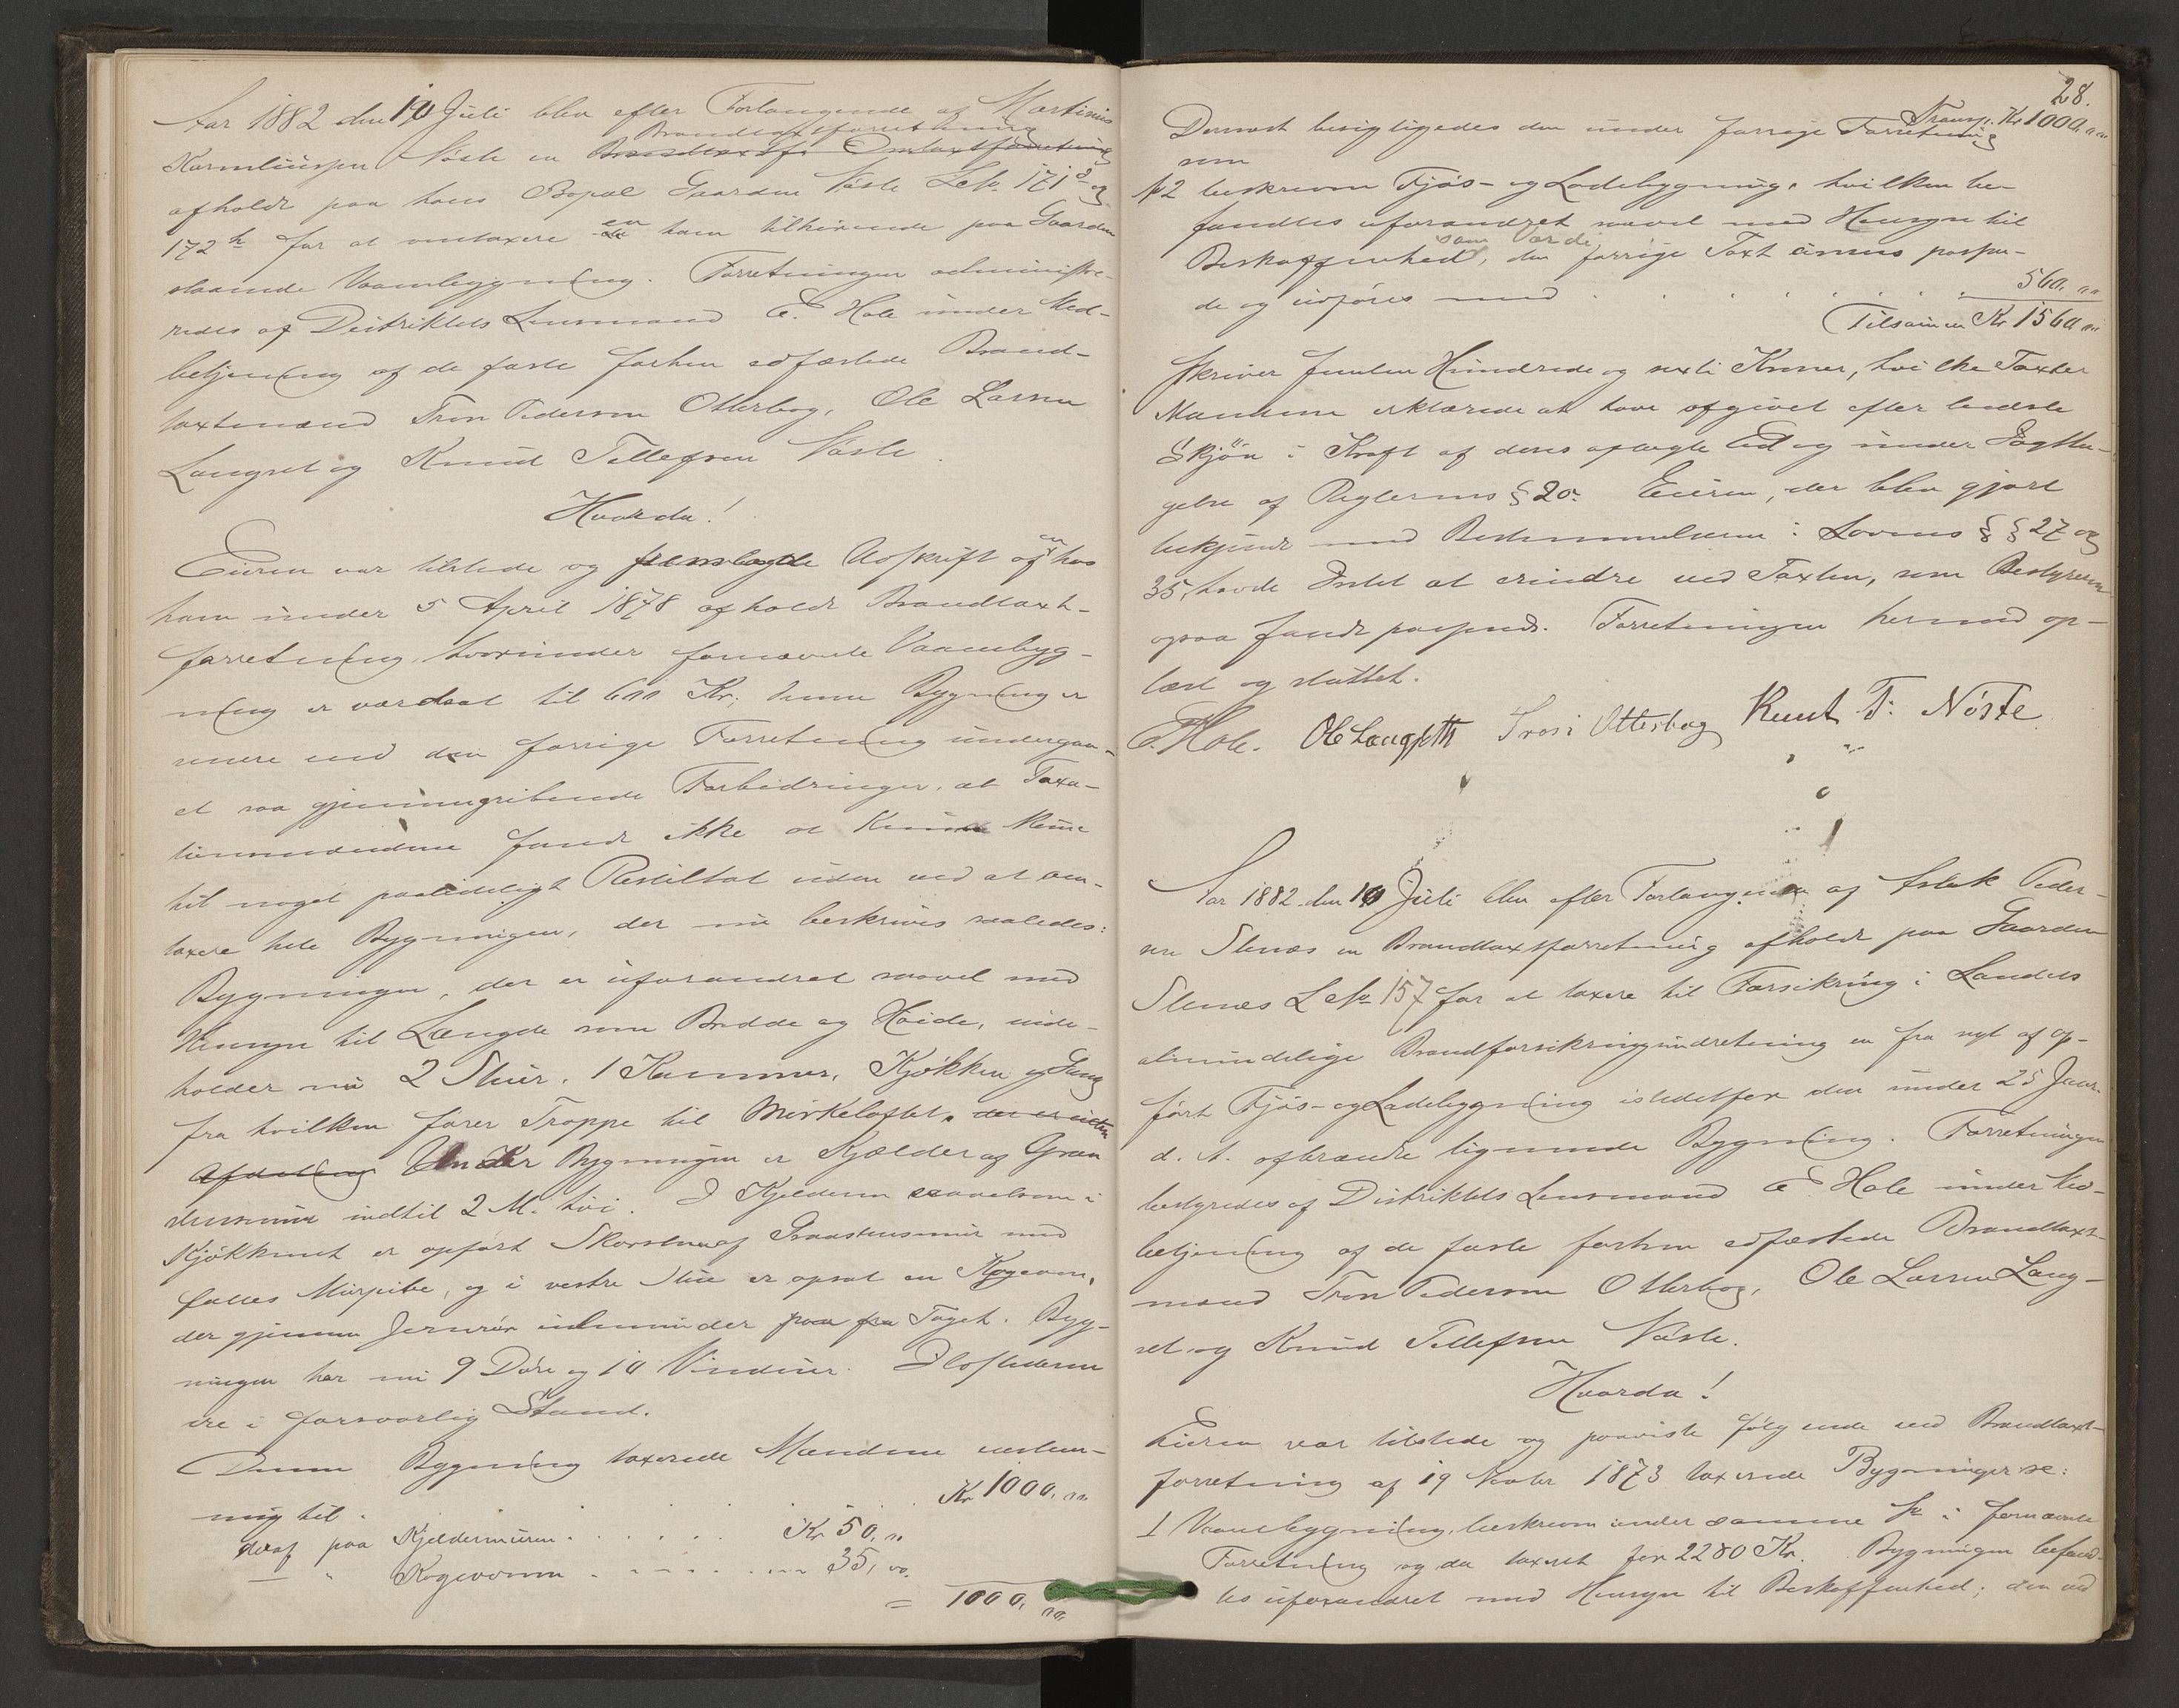 Aar 1882 den 10 Juli blev efter Forlangende af Martinius
Brandtaxtforretning
Karmliussen Nöste en Brandtaxtf. Omtaxtforretning
afholdt paa hans Bopæl Gaarden Nöste L.№ 171 og
172 b for at omtaxere en ham tilhörende paa Gaarden
staaende Vaanebygning. Forretningen administre-
redes af Distriktets Lensmand E. Hole under Med-
betjening af de faste forhen edfæstede Brand-
taxtmænd Tron Pedersen Otterbog, Ole Larsen
Langset og Knud Tellefsen Nöste.
Hvorda!
Eieren var tilstede og fremlagde Udskrift af en hos
ham under 5 April 1878 afholdt Brandtaxt-
forretning, hvorunder fornævnte Vaanebyg-
ning er værdsat til 600 Kr; denne Bygning er
senere end den forrige Forretning undergaa-
et saa gjennemgribende Forbedringer, at Taxa-
tionsmændene fandt ikke at kunne komme
til noget paalideligt Resultat uden ved at om-
taxere hele Bygningen, der nu beskrives saaledes:
Bygningen, der er uforandret saavel med
Hensyn til Længde som Bredde og Höide, inde-
holder nu 2 Stuer, 1 Kammer, Kjökken og Gang
fra hvilken förer Trappe til Mörkeloftet, der er uden
Afdeling Under Bygningen er Kjælder af Graa
stensmur indtil 2 M. höi. I Kjelderen saavelsom i
Kjökkenet er opfört Skorsten af Graastensmur med
fælles Murpibe, og i vestre Stue er opsat en Kogeovn,
der gjennem Jernrör udmunder paa fra Taget. Byg-
ningen har nu 9 Döre og 10 Vinduer. Ildstederne
ere i forsvarlig Stand.
Denne Bygning taxerede Mændene enstem-
mig til . . . . . . Kr 1000,00
deraf paa Kjeldermuren . . . . . Kr 50,00
— " Kogeovnen . . . . . . 35,00.
= 1000,00.
28.
Transp. Kr 1000,00
Dernæst besigtigedes den under forrige Forretning
som
№2 beskrevne Fjös- og Ladebygning, hvilken be-
fandtes uforandret saavel med Hensyn til
som Værdi
Beskaffenhed, den forrige Taxt ansees passen-
de og udföres med . . . . . . . . 560,00
Tilsammen Kr 1560,00
skriver Femten Hundrede og sexti Kroner, hvilke Taxter
Mændene erklærede at have afgivet efter bedste
Skjön i Kraft af deres aflagte Ed og under Iagtta-
gelse af Reglernes § 20. Eieren, der blev gjort
bekjendt med Bestemmelserne i Lovens §§ 27 og
35, havde Intet at erindre ved Taxten, som Bestyreren
ogsaa fandt passende. Forretningen hermed op-
læst og sluttet.
E. Hole. Ole Langseth Tron Otterbog Knut T. Nöste
Aar 1882 den 10 Juli blev efter Forlangende af Aslak Peder-
sen Stenes en Brandtaxtforretning afholdt paa Gaarden
Stenes L.№ 157 for at taxere til Forsikring i Landets
almindelige Brandforsikringsindretning en fra nyt af op-
fört Fjös- og Ladebygning istedetfor den under 25 Janr
d. A. afbrændte lignende Bygning. Forretningen
bestyredes af Distriktets Lensmand E. Hole under Med-
betjening af de faste forhen edfæstede Brandtaxt-
mænd Tron Pedersen Otterbog, Ole Larsen Lang-
set og Knud Tellefsen Nöste.
Hvorda!
Eieren var tilstede og paaviste fölgende ved Brandtaxt-
forretning af 19 Novber 1873 taxerede Bygninger se:
1 Vaanebygning, beskreven under samme № i fornævnte
Forretning og da taxeret for 2280 Kr. Bygningen befand-
tes uforandret med Hensyn til Beskaffenhed; den ved